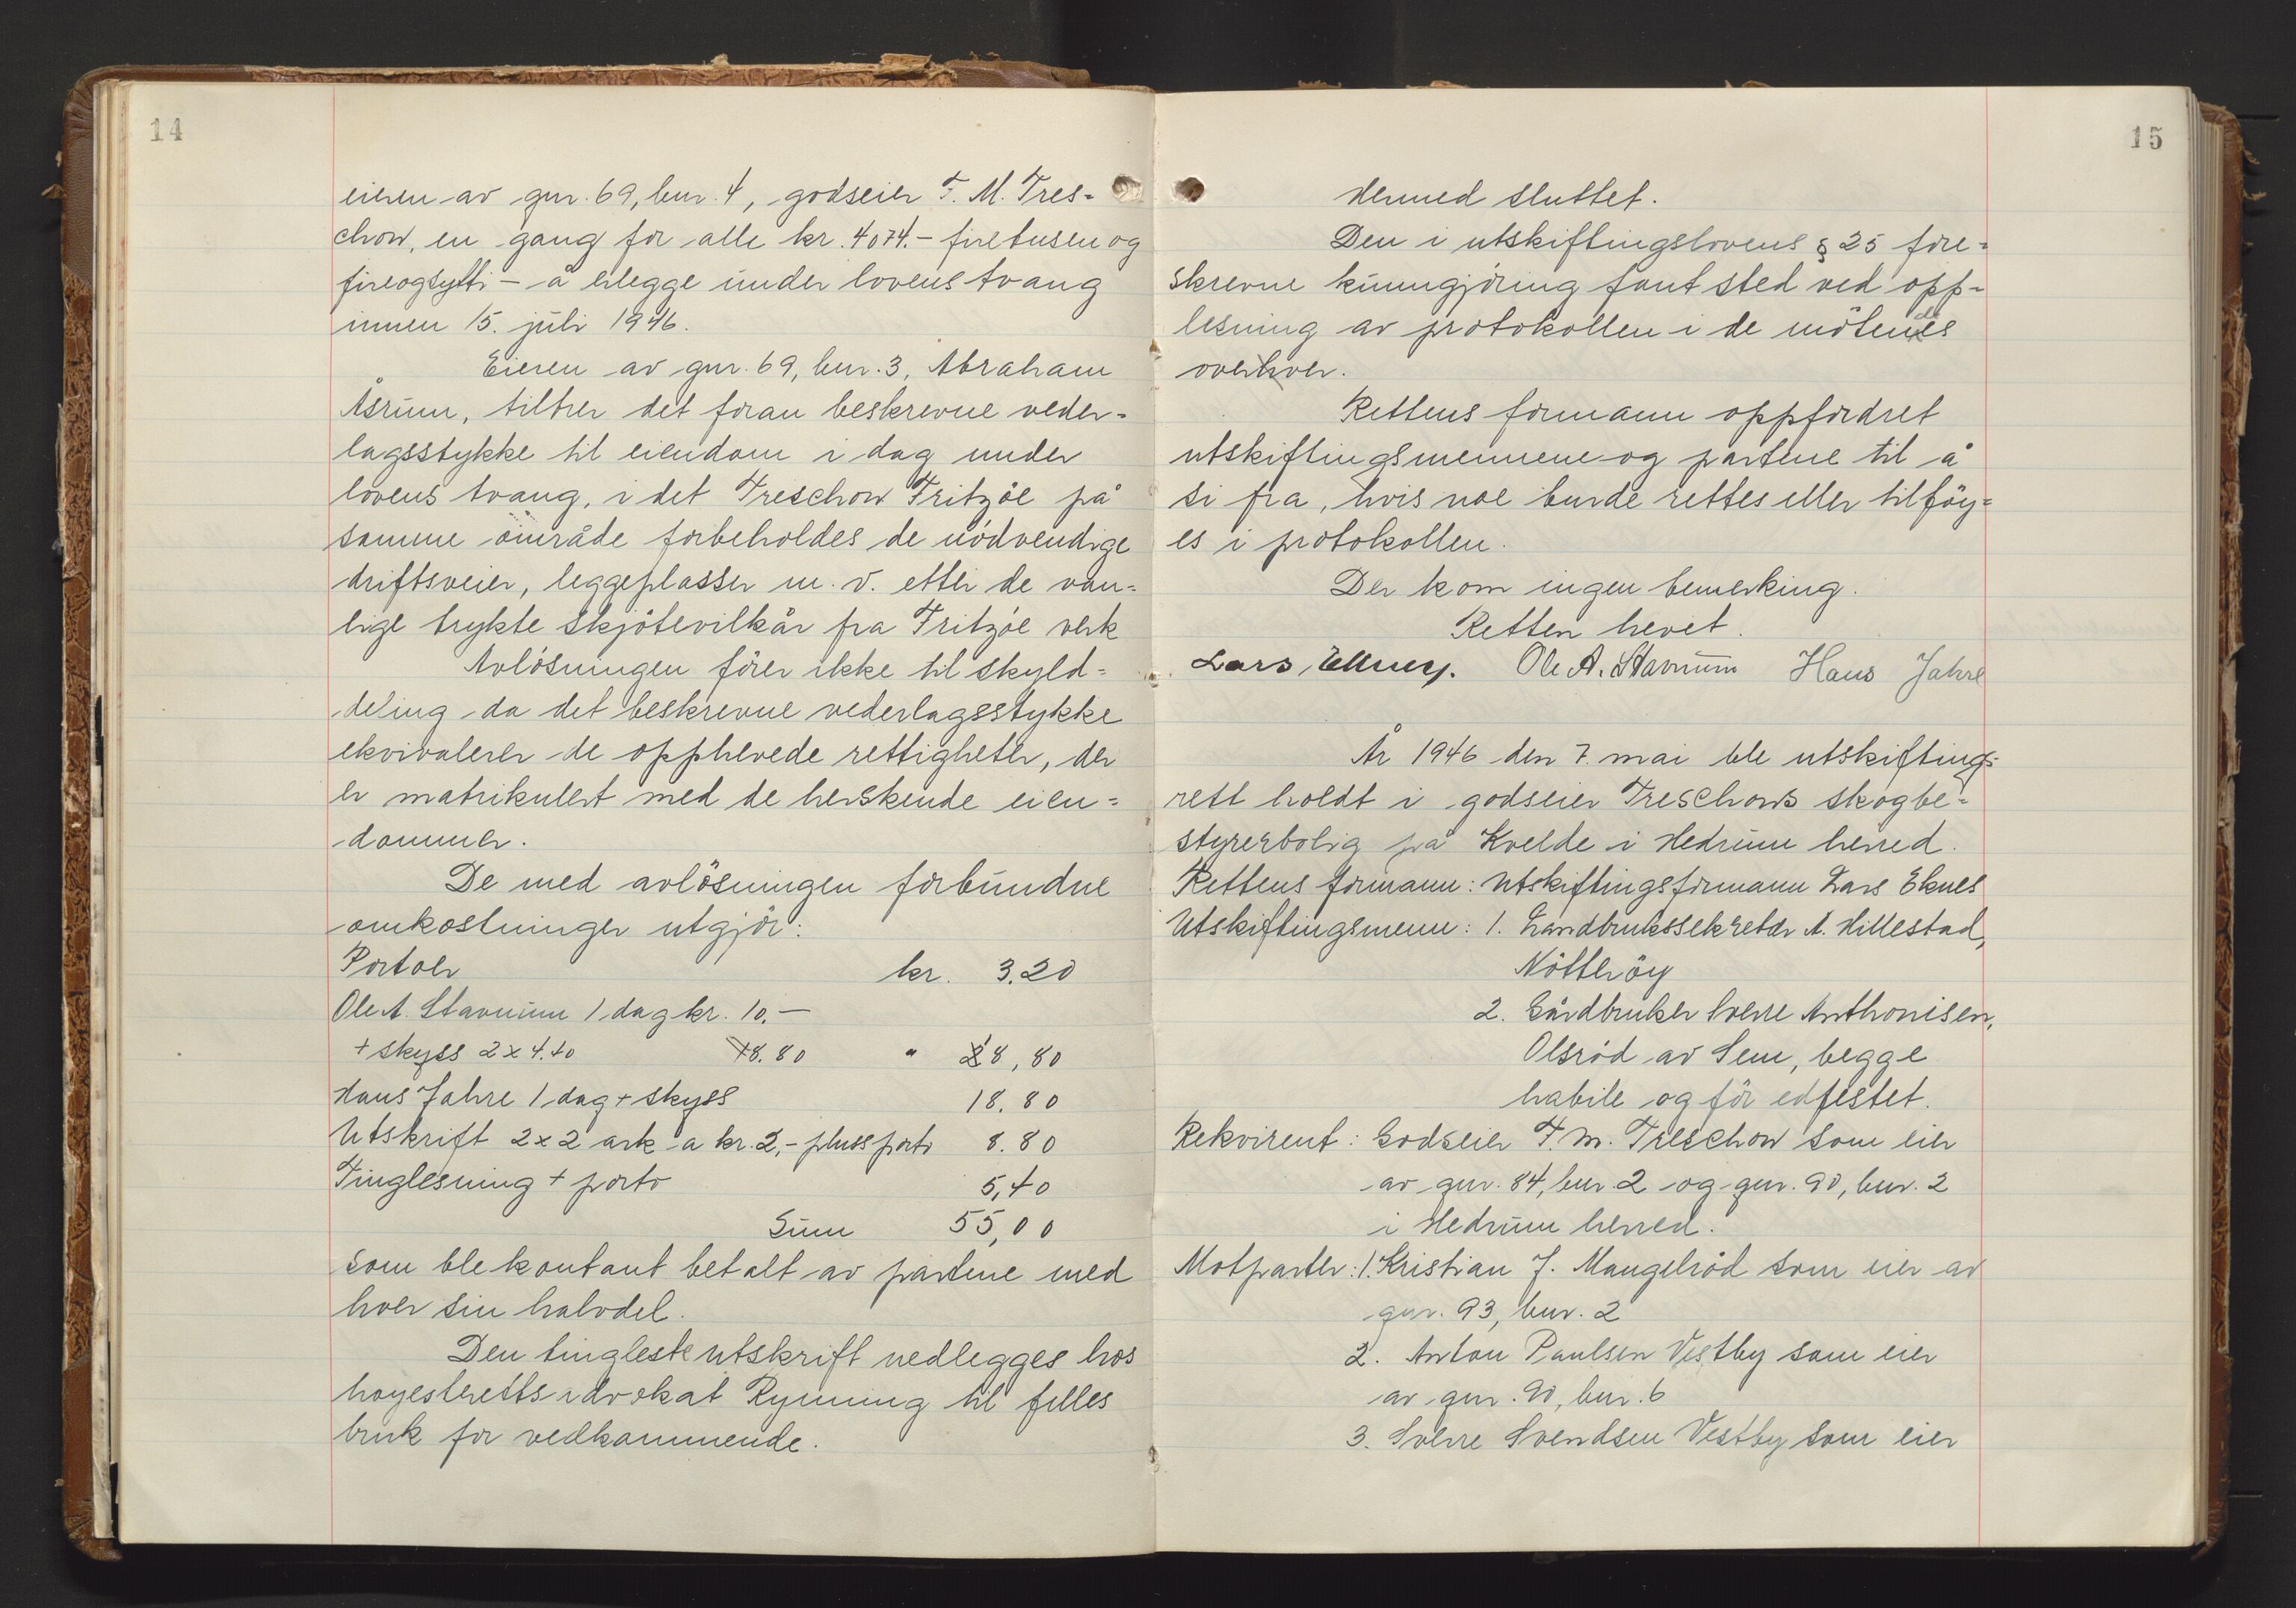 14
eieren av gnr. 69, bnr. 4, godseier F. M. Tres=
chow, en gang for alle kr. 4074.- firetusen og
fireogsytti - å erlegge under lovens tvang
innen 15. juli 1946.
Eieren av gnr. 69, bnr. 3, Abraham
Åsrum, tiltrer det foran beskrevne veder=
lagsstykke til eiendom i dag under
lovens tvang, i det Treschow Fritzöe på
samme område forbeholdes de nödvendige
driftsveier, leggeplasser m. v. etter de van=
lige trykte skjötevilkår fra Fritzöe verk
Avlösningen förer ikke til skyld=
deling da det beskrevne vederlagsstykke
ekvivalerer de opphevede rettigheter, der
er matrikulert med de herskende eien=
dommer.
De med avlösningen forbundne
omkostninger utgjör:
Portoer kr. 3.20
Ole A. Stavnum 1 dag kr. 10.-
+ skyss 2 x 4.40 8.80 " 18,80
Hans Jahre 1 dag + skyss 18.80
Utskrift 2x2 ark a kr. 2,- pluss porto 8.80
Tinglesning + porto 5,40
Sum 55,00
som ble kontant betalt av partene med
hver sin halvdel.
Den tingleste utskrift nedlegges hos
høyesterettsadvokat Rynning til felles
bruk for vedkommende.
15
Hermed sluttet.
Den i utskiftingslovens § 25 fore=
skrevne kunngjöring fant sted ved opp=
lesning av protokollen i de mötendes
overver.
Rettens formann oppfordret
utskiftingsmennene og partene til å
si fra, hvis noe burde rettes eller tilföy=
es i protokollen.
Der kom ingen bemerking.
Retten hevet.
Lars Eknes. Ole A. Stavnum Hans Jahre
År 1946 den 7. mai ble utskiftings-
rett holdt i godseier Treschows skogbe=
styrerbolig på Kvelde i Hedrum herred.
Rettens formann: Utskiftingsformann Lars Eknes
Utskiftingsmenn: 1. Landbrukssekretær A. Hillestad,
Nötteröy
2. Gårdbruker Sverre Anthonisen,
Olsröd av Sem, begge
habile og för edfestet.
Rekvirent: Godseier F. M. Treschow som eier
av gnr. 84, bnr. 2 og gnr. 90, bnr. 2
i Hedrum herred.
Motparter: 1. Kristian J. Mangelröd som eier av
gnr. 93, bnr. 2
2. Anton Paulsen Vestby som eier
av gnr. 90, bnr. 6
3. Sverre Svendsen Vestby som eier